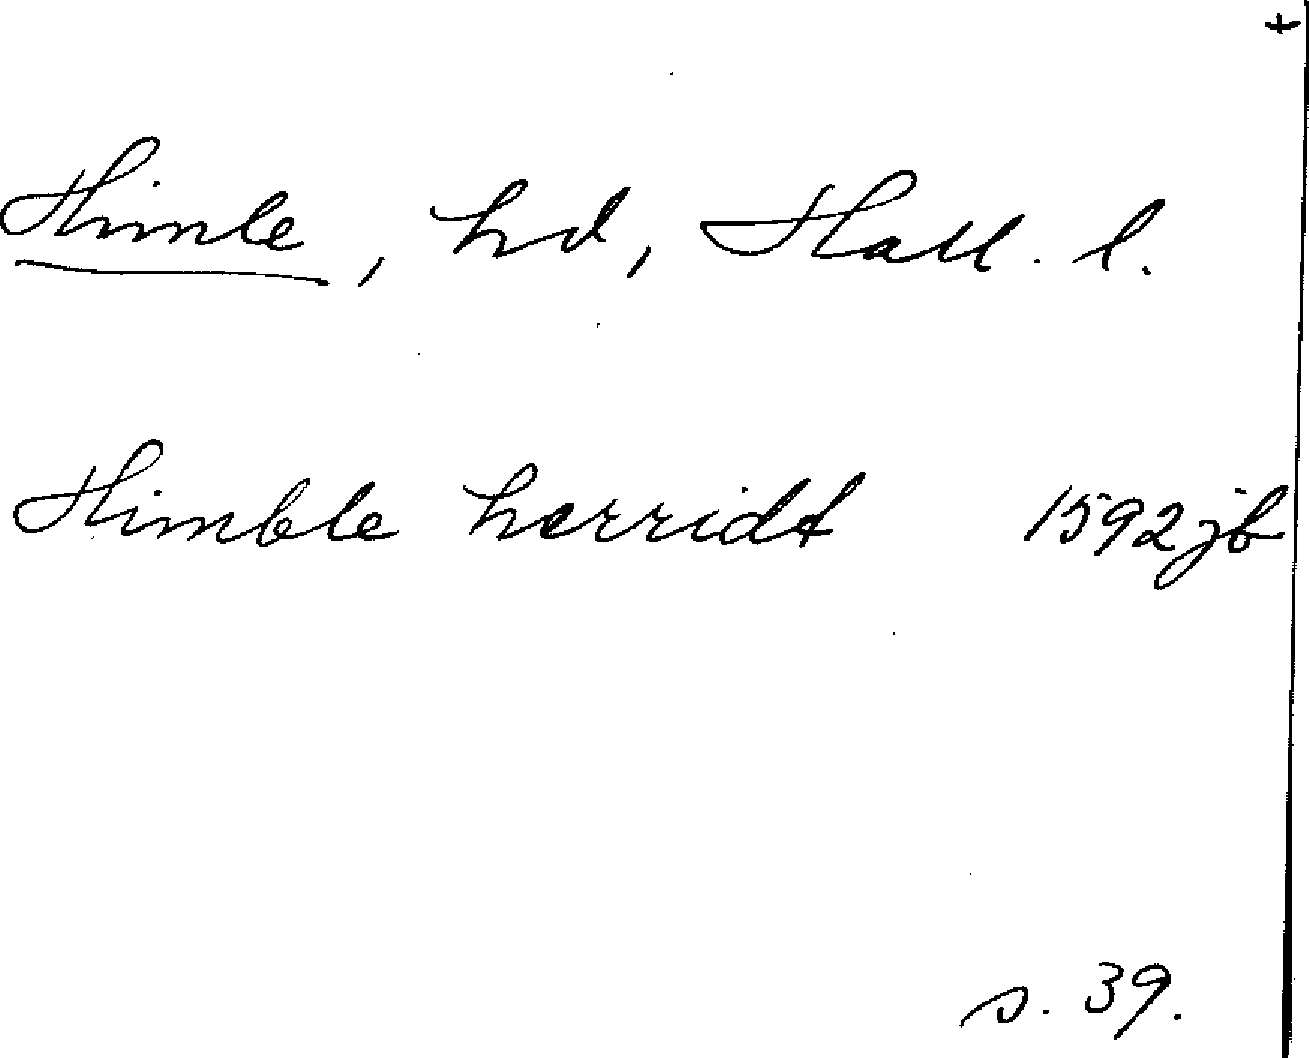 +
Himle, hd, Hall. l.
Himble herridt 1592 jb
s. 39.